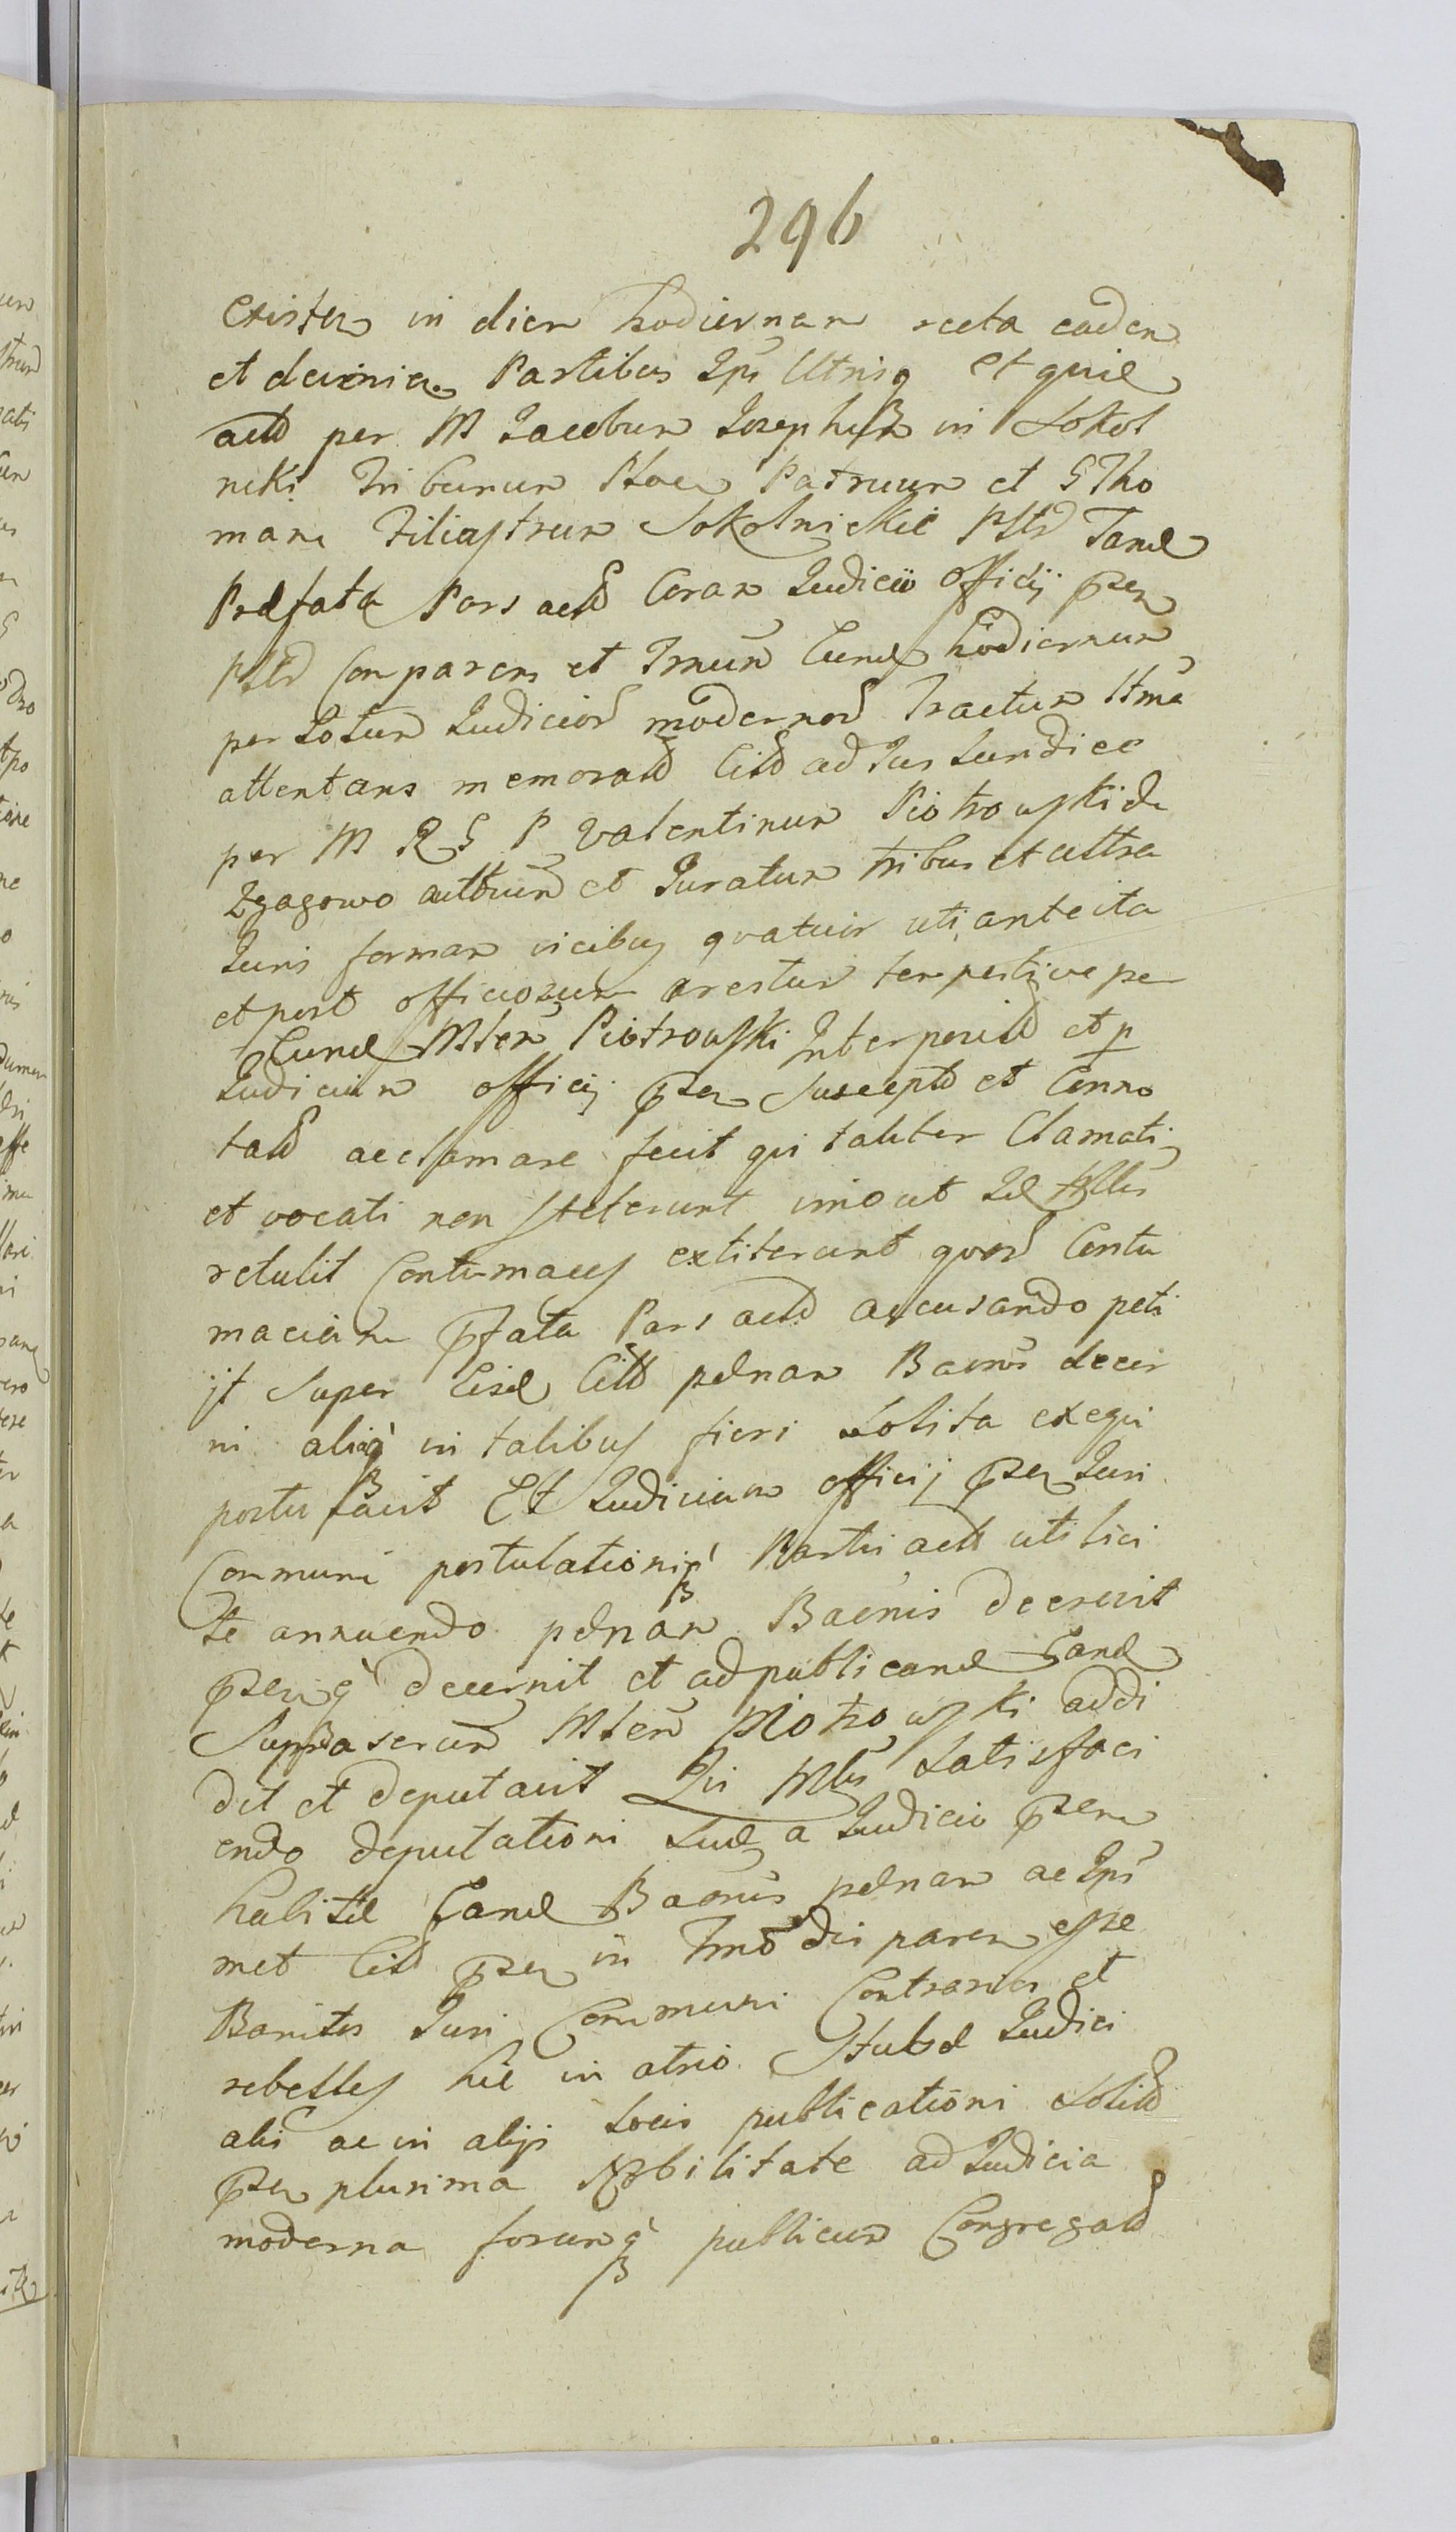 296
existen in diem hodiernam recta eadem
et devenien Partibus Ips Utrisq et quid
actd per M Jacobum Josephum in Sokol
niki Tribunum Patruum et G Tho
mam Filiastrum Sokolnickie Pltd Tand
Praefata Pars actd Coram Judicio Officij pzen
Pltd Comparens et Tmum Eund hodiernum
per totum Judiciord modernord Tractum ltme
attentans memoratd Citd ad Jus Juridice
per M R G P Valentinum Piotrowski de
Zgagowo autthum et Juratum tribus et ultra
Juris formam vicibus quatuor uti ante ita
et post officiosum arestum tempestive per
Eund Mlem Piotrowski Interpositd et p
Judicium officij pzen susceptd et Conno
tatd acclamare fecit qui taliter Clamati
et vocati non steterunt imo ut Id Mlis
retulit Contumaces extiterunt quord Contu
maciam pfata Pars actd accusando peti
jt super Eisd Citd paenam Bacnis decer
ni aliaq in talibus fieri solita exequi
postulavit Et Judicium officij pzen Juri
Communi postulationiq Partis actd uti lici
te annuendo paenam Bacnis decrevit
pzenq decernit et ad publicand Eand
Suprascrum Mlem Piotrowski addi
dit et deputavit Qui Mlis satisfaci
endo deputationi suae a Judicio pzen
habitae Eand Bacnis paenam ac Ips
met Citd pzen in Tmo di paren esse
Banitos Juri Communi Contrarios et
rebelles hic in atrio Stubae Judici
alis ac in alijs locis publicationi solitd
pzen plurima Nobilitate ad Judicia
moderna forumq publicum Congregatd